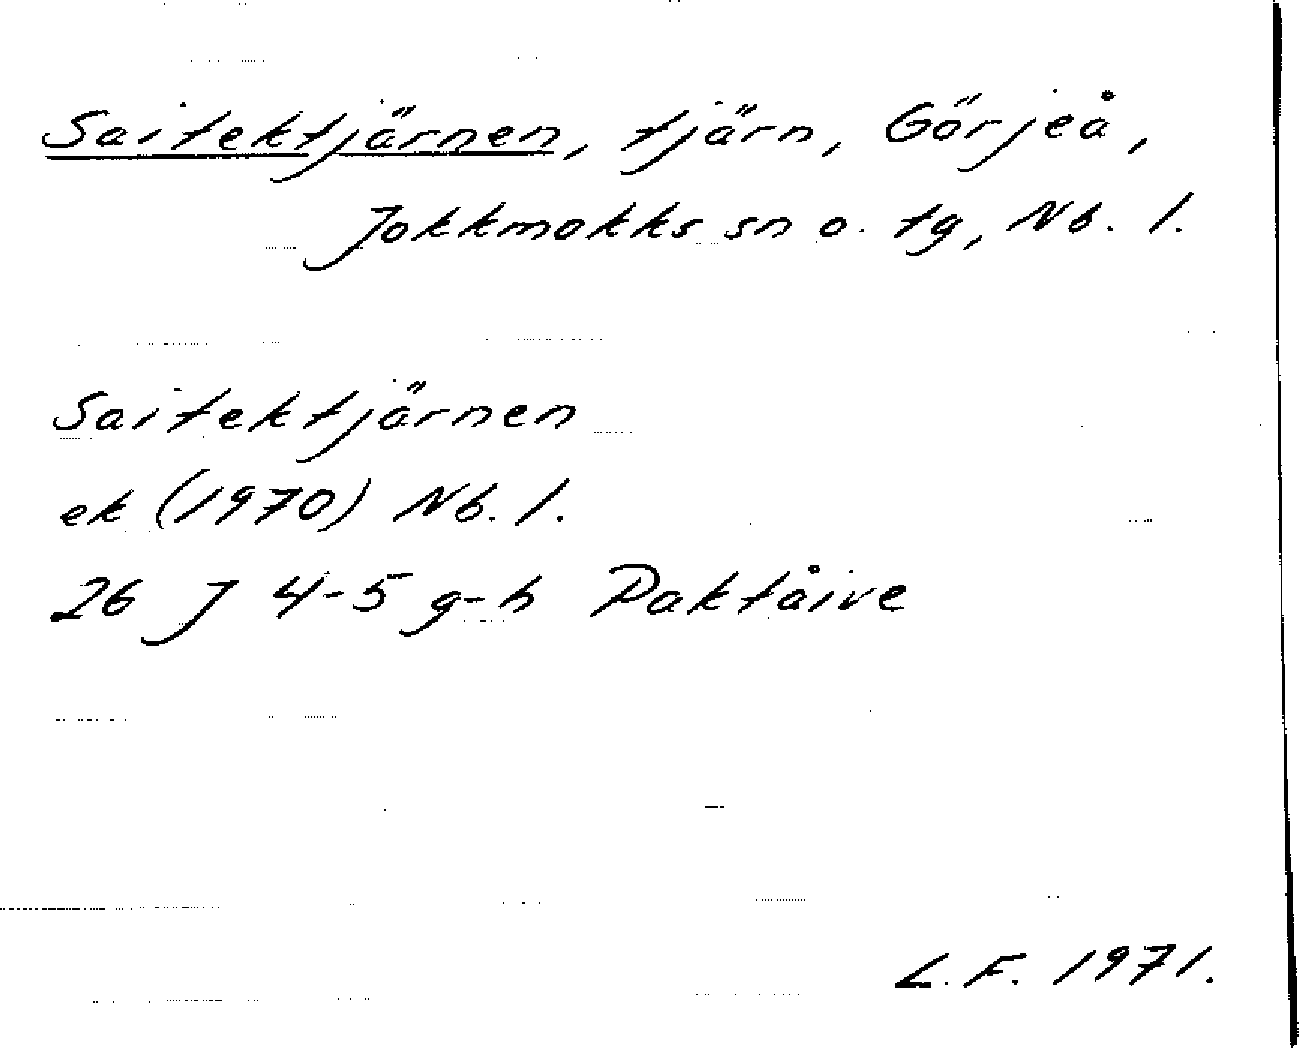 Saitektjärnen, tjärn, Görjeå,
Jokkmokks sn o. tg, Nb. l.
Saitektjärnen
ek (1970) Nb. l.
26 J 4-5 g-h Paktåive
L.F. 1971.